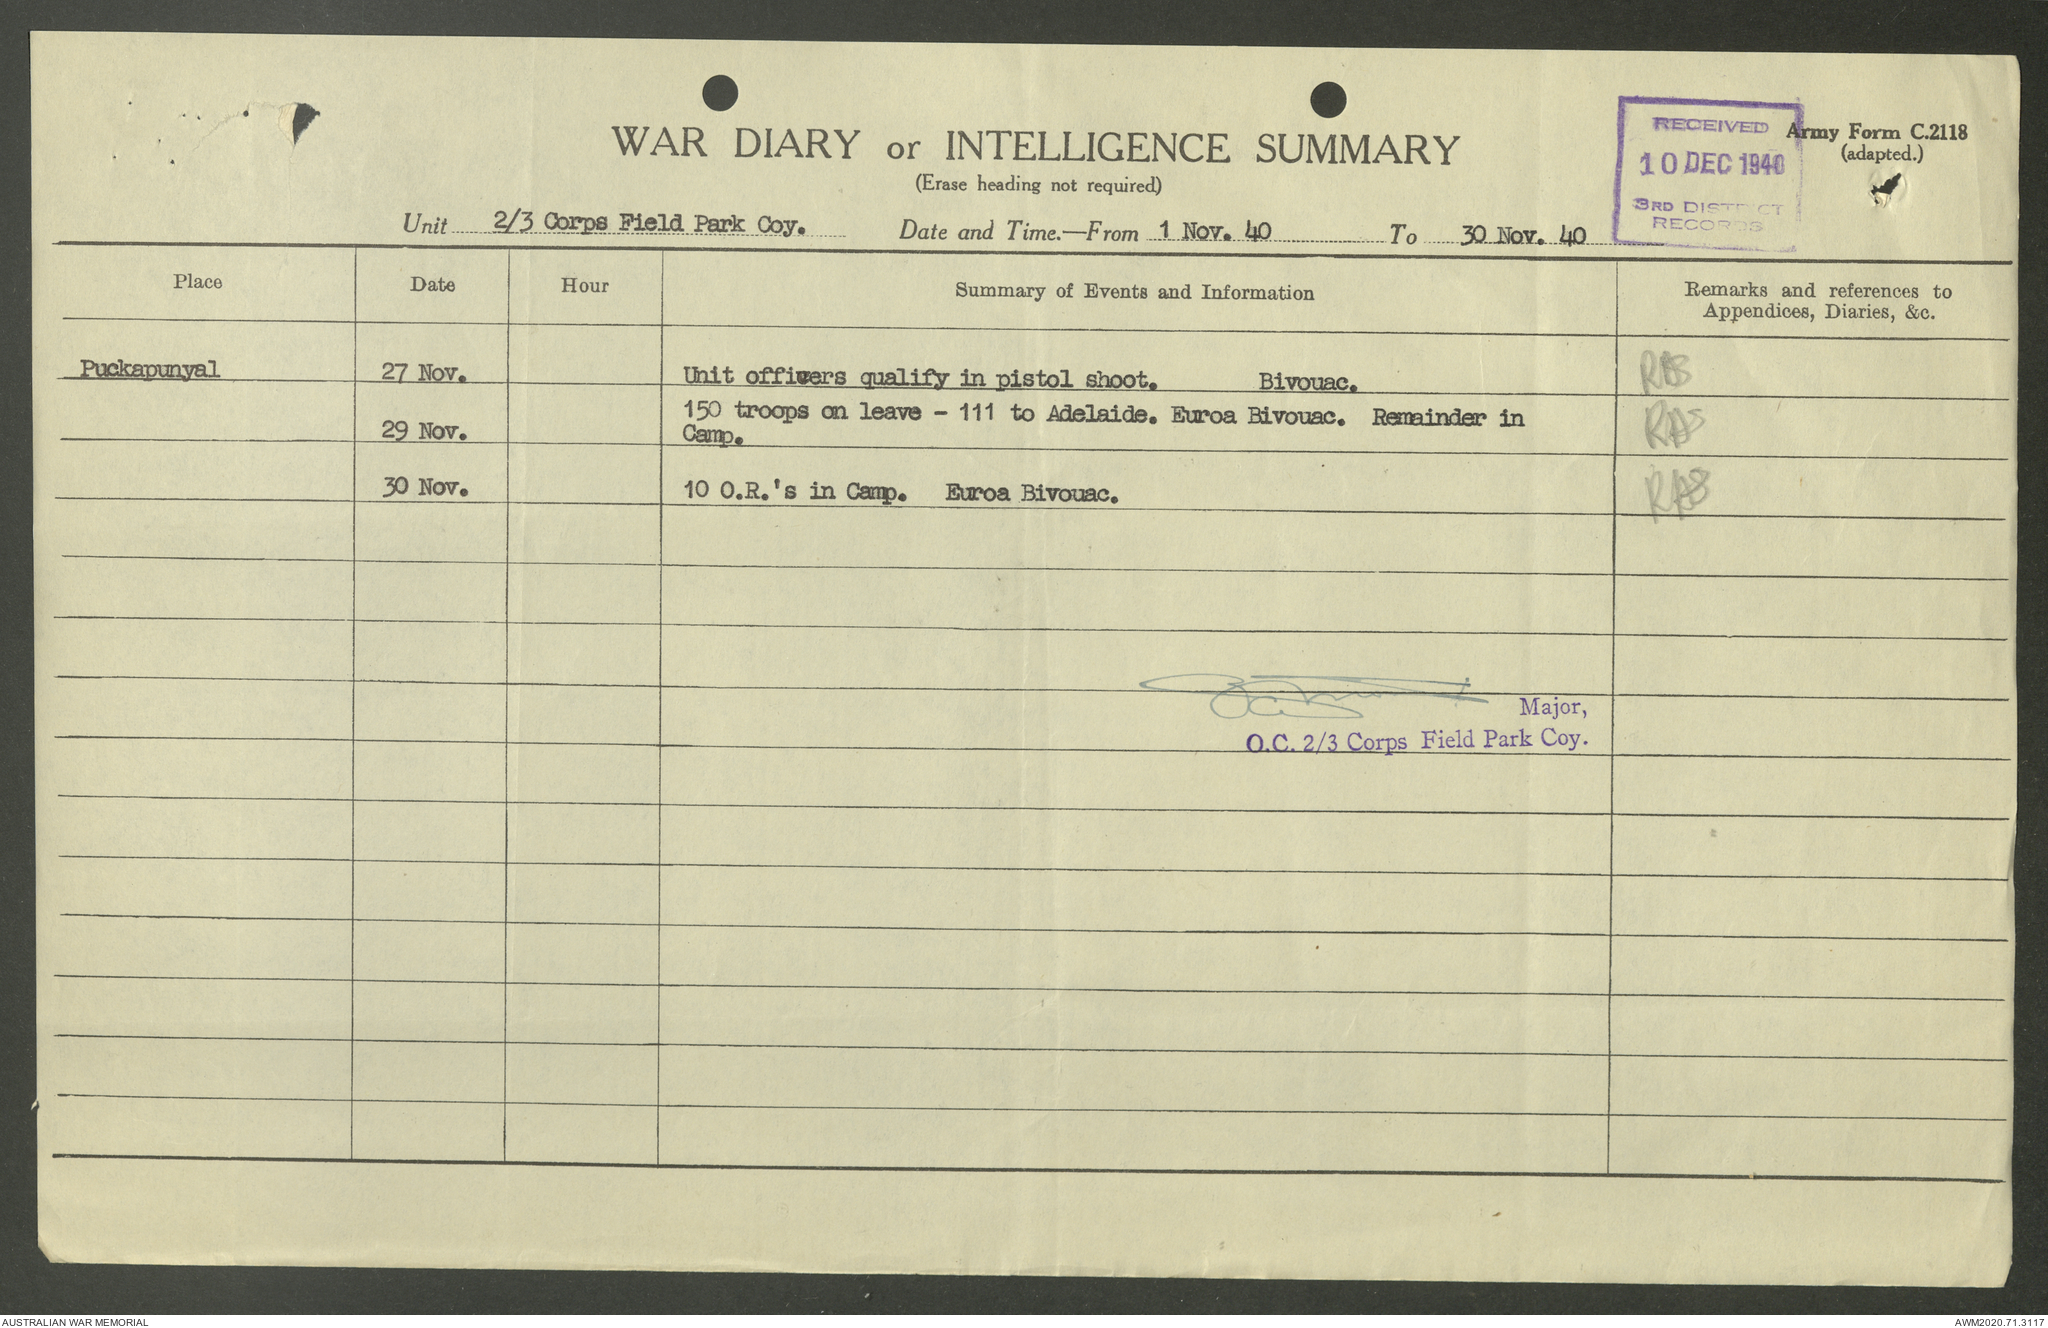 WAR DIARY or INTELLIGENCE SUMMARY
(Erase heading not required)
Army Form C.2118
(adapted.)
RECEIVED
10 DEC 1940
3RD DISTRICT
RECORDS
Unit 2/3 Corps Field Park Coy. Date and Time.—From 1 Nov. 40 To 30 Nov. 40
Place Date Hour Summary of Events and Information Remarks and references to
Appendices, Diaries, &c.
Puckapunyal 27 Nov. Unit officers qualify in pistol shoot. Bivouac. RAS
150 troops on leave - 111 to Adelaide. Euroa Bivouac. Remainder in
29 Nov. Camp. RAS
30 Nov. 10 O.R.'s in Camp. Euroa Bivouac. RAS
Major,
O.C. 2/3 Corps Field Park Coy.
AUSTRALIAN WAR MEMORIAL
AWM2020.71.3117